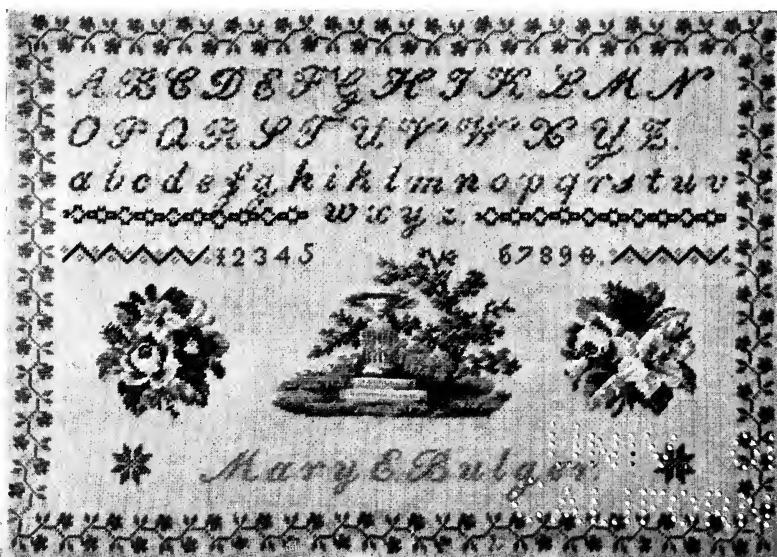 A B C D E F G H I K L M N
O P Q R S T U V W X Y Z.
a b c d e f g h i k l m n o p q r s t u v
w x y z.
1 2 3 4 5 6 7 8 9 0.
Mary E Bulger
UNIV